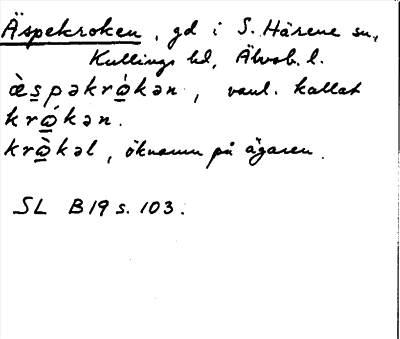 Äspekroken, gd i S. Härene sn.,
Kullings hd, Älvsb. l.
æ̀s̲pəkrώ̲kən, vanl. kallat
krώ̲kən.
krὼ̲kəl, öknamn på ägaren.
SL B19 s. 103.